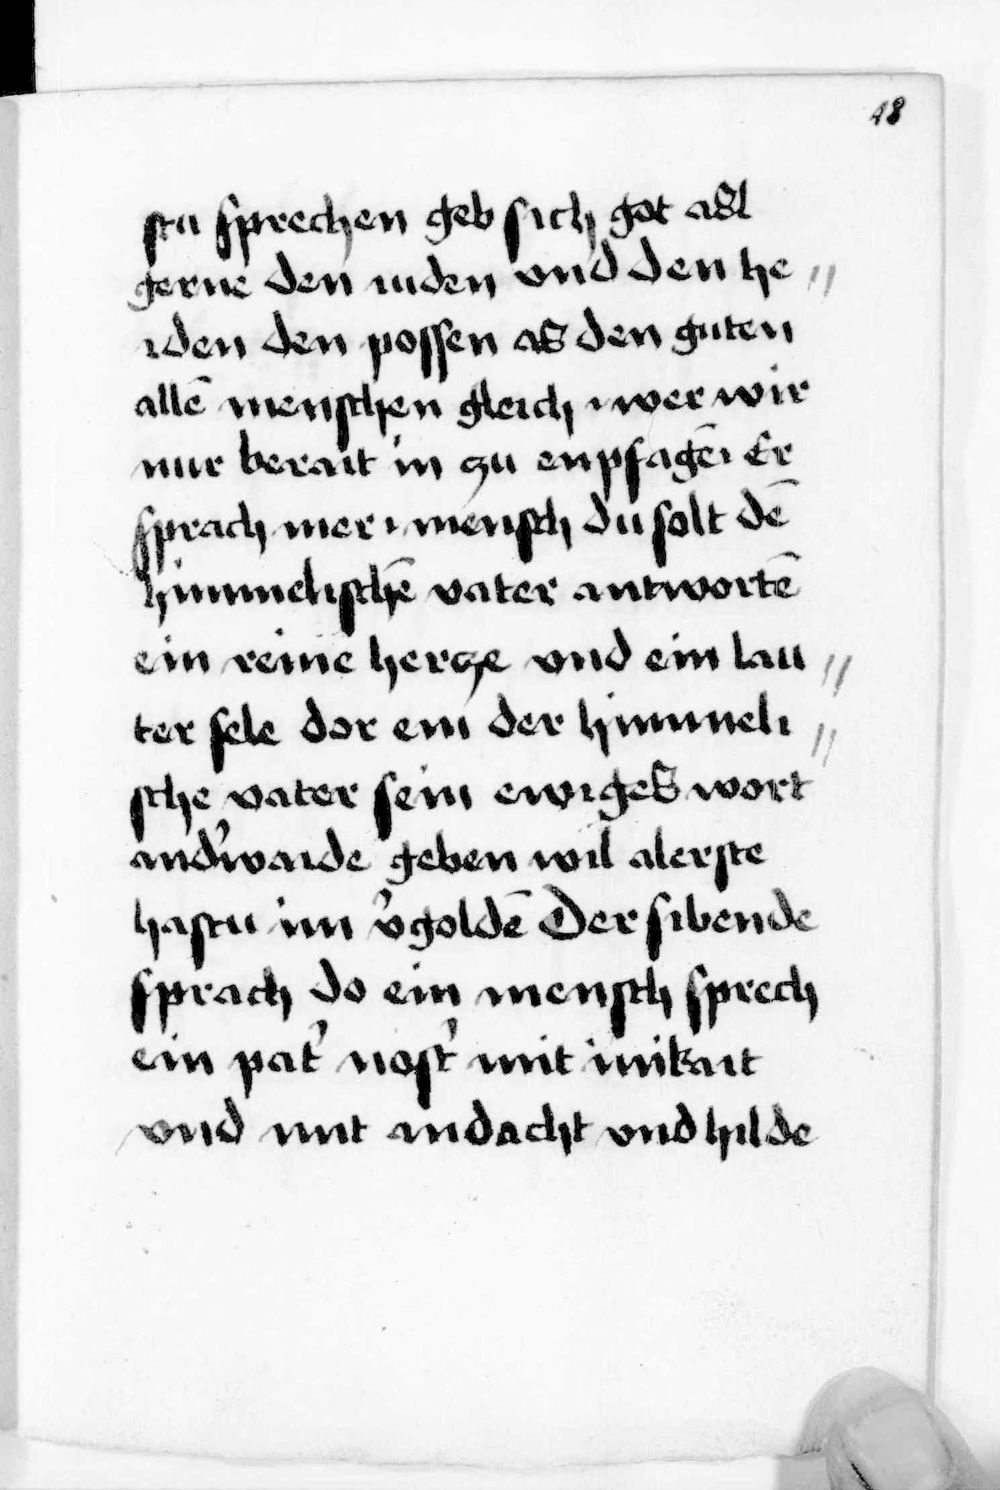 48
stu sprechen geb sich got asl
gerne den iuden vnd den he //
iden den possen as den guten
allē menschen gleich · wer wir
nur berait in zu enpfagē · Er
sprach mer · mensch du solt dē
himmelischē vater antwortē
ein reine hercze vnd ein lau //
ter sele dor ein der himmeli //
sche vater sein ewiges wort
and'waide geben wil alerste
hastu im v'goldē Der sibende
sprach do ein mensch sprech
ein pat' nost' mit inikait
vnd mit andacht vnd hilde